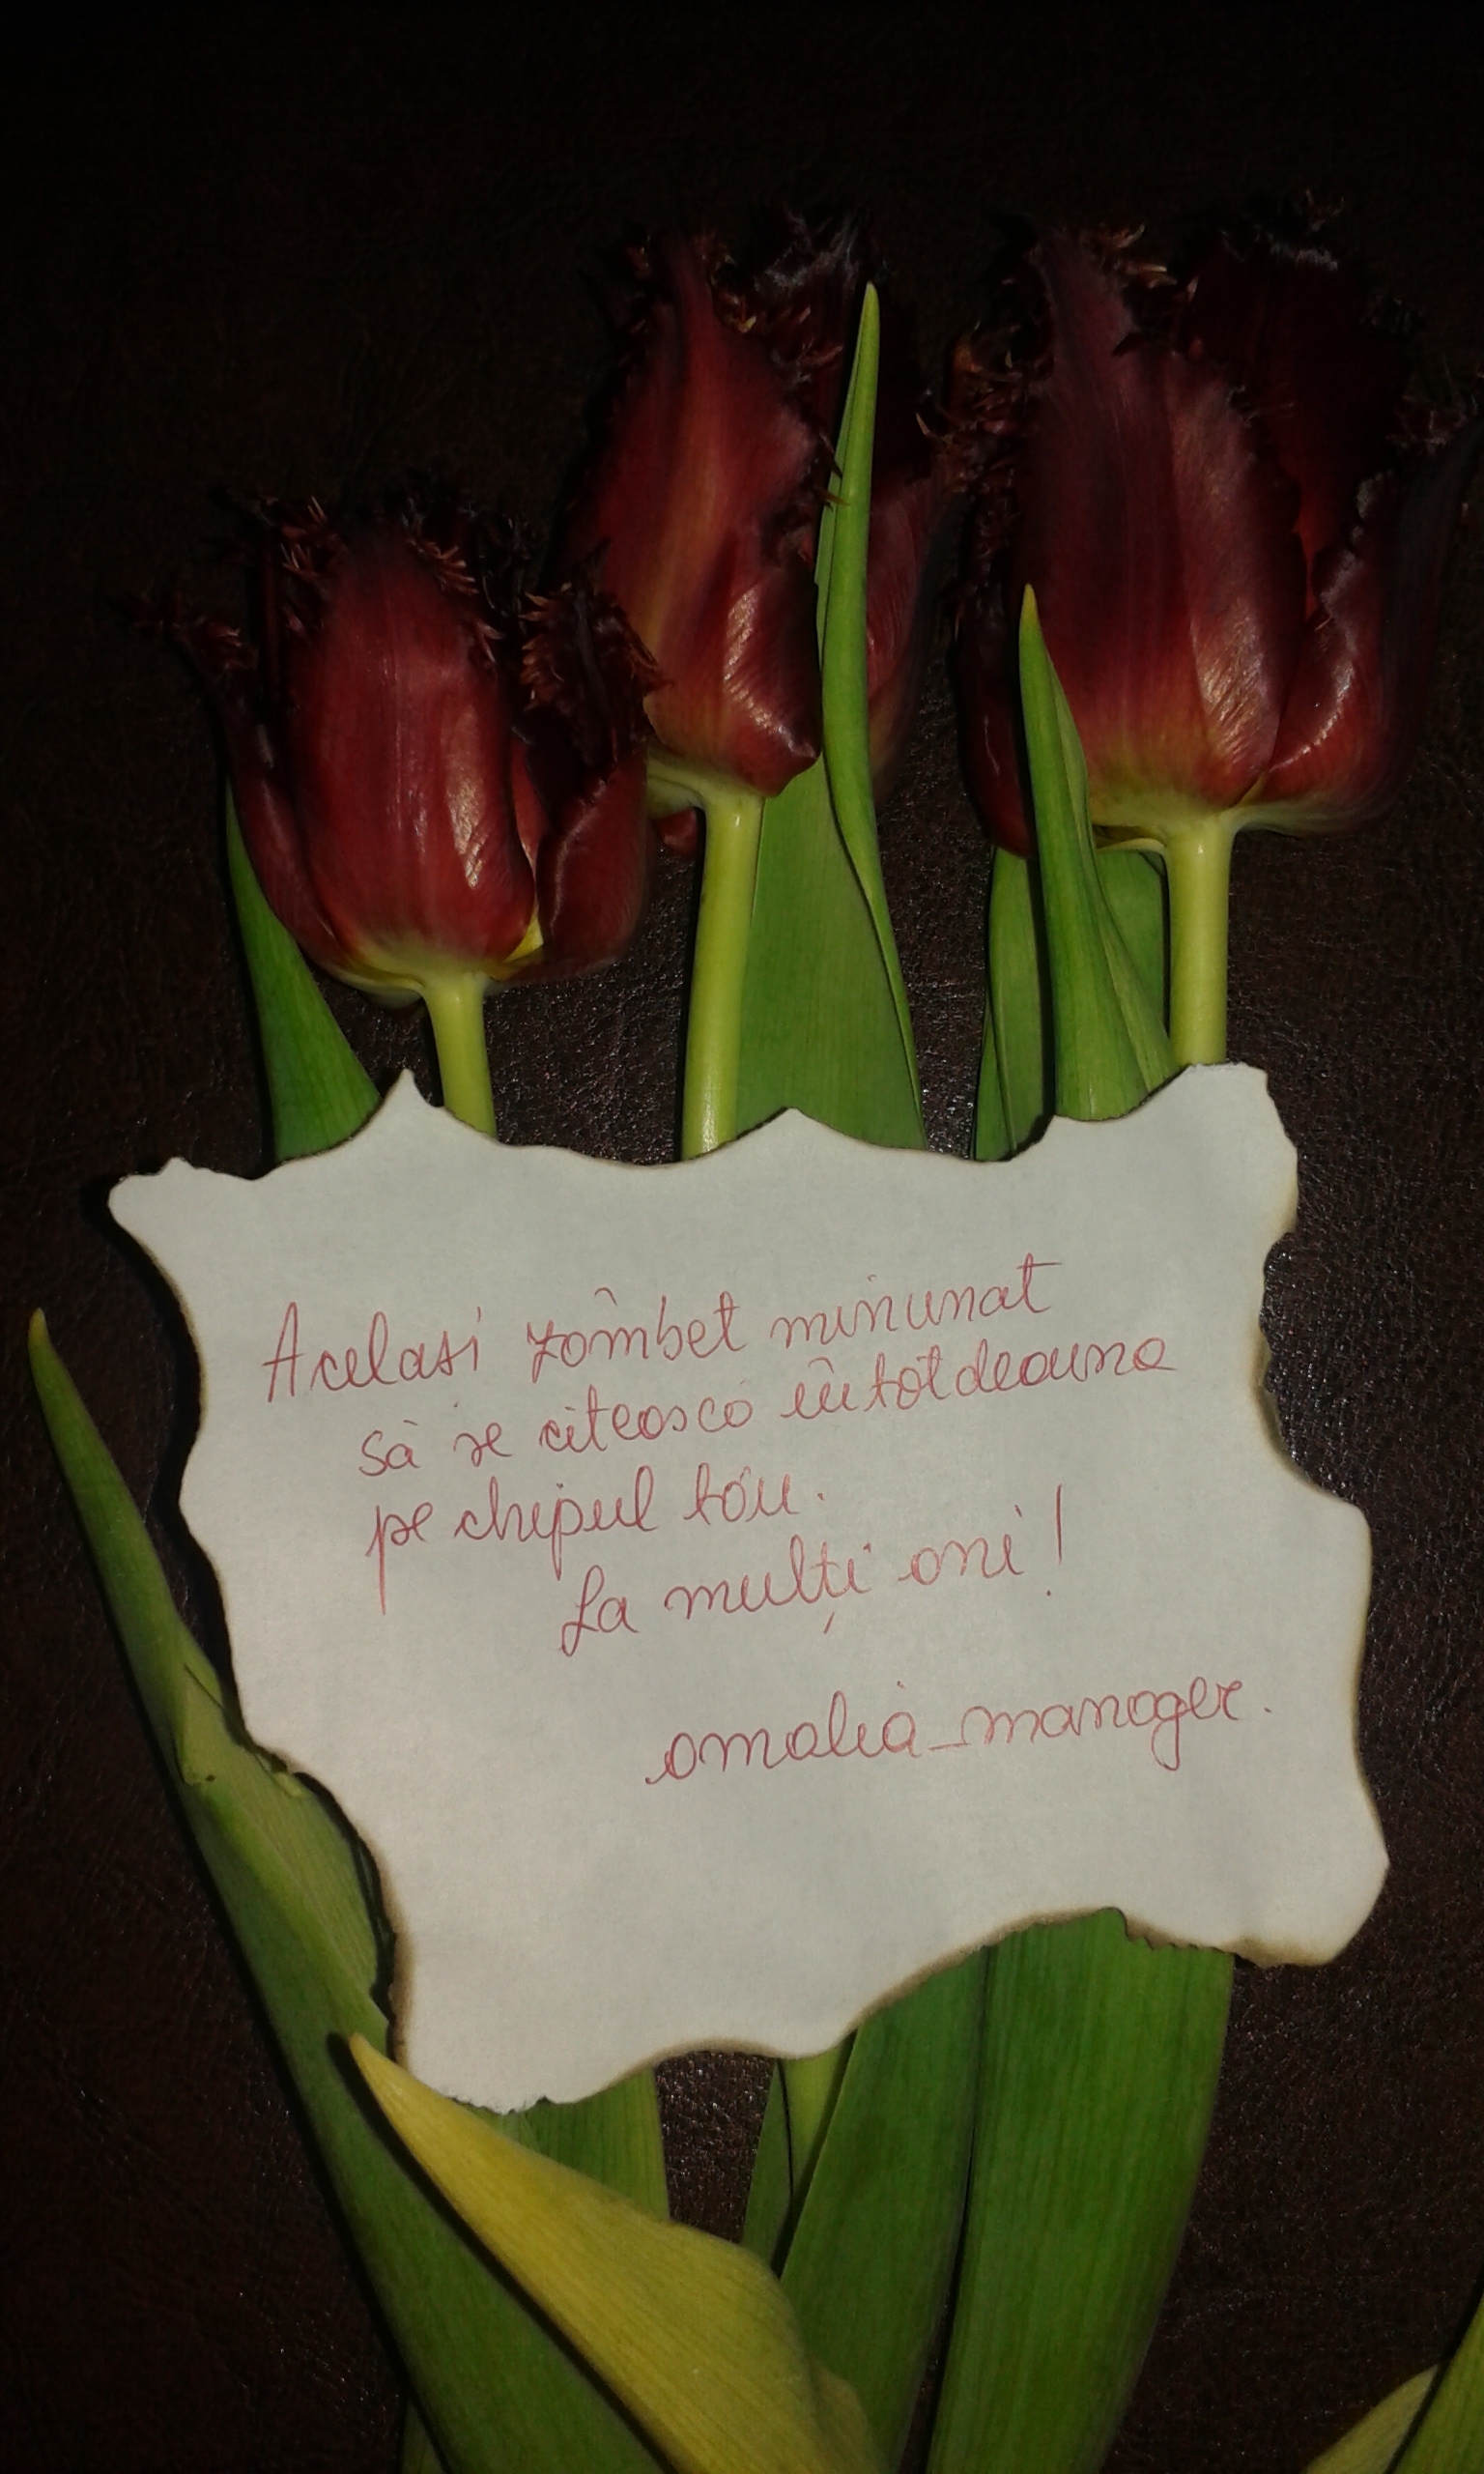 Acelasi zâmbet minunat
să se citească întotdeauna
pe chipul tău.
La mulți ani!
amalia_manager.